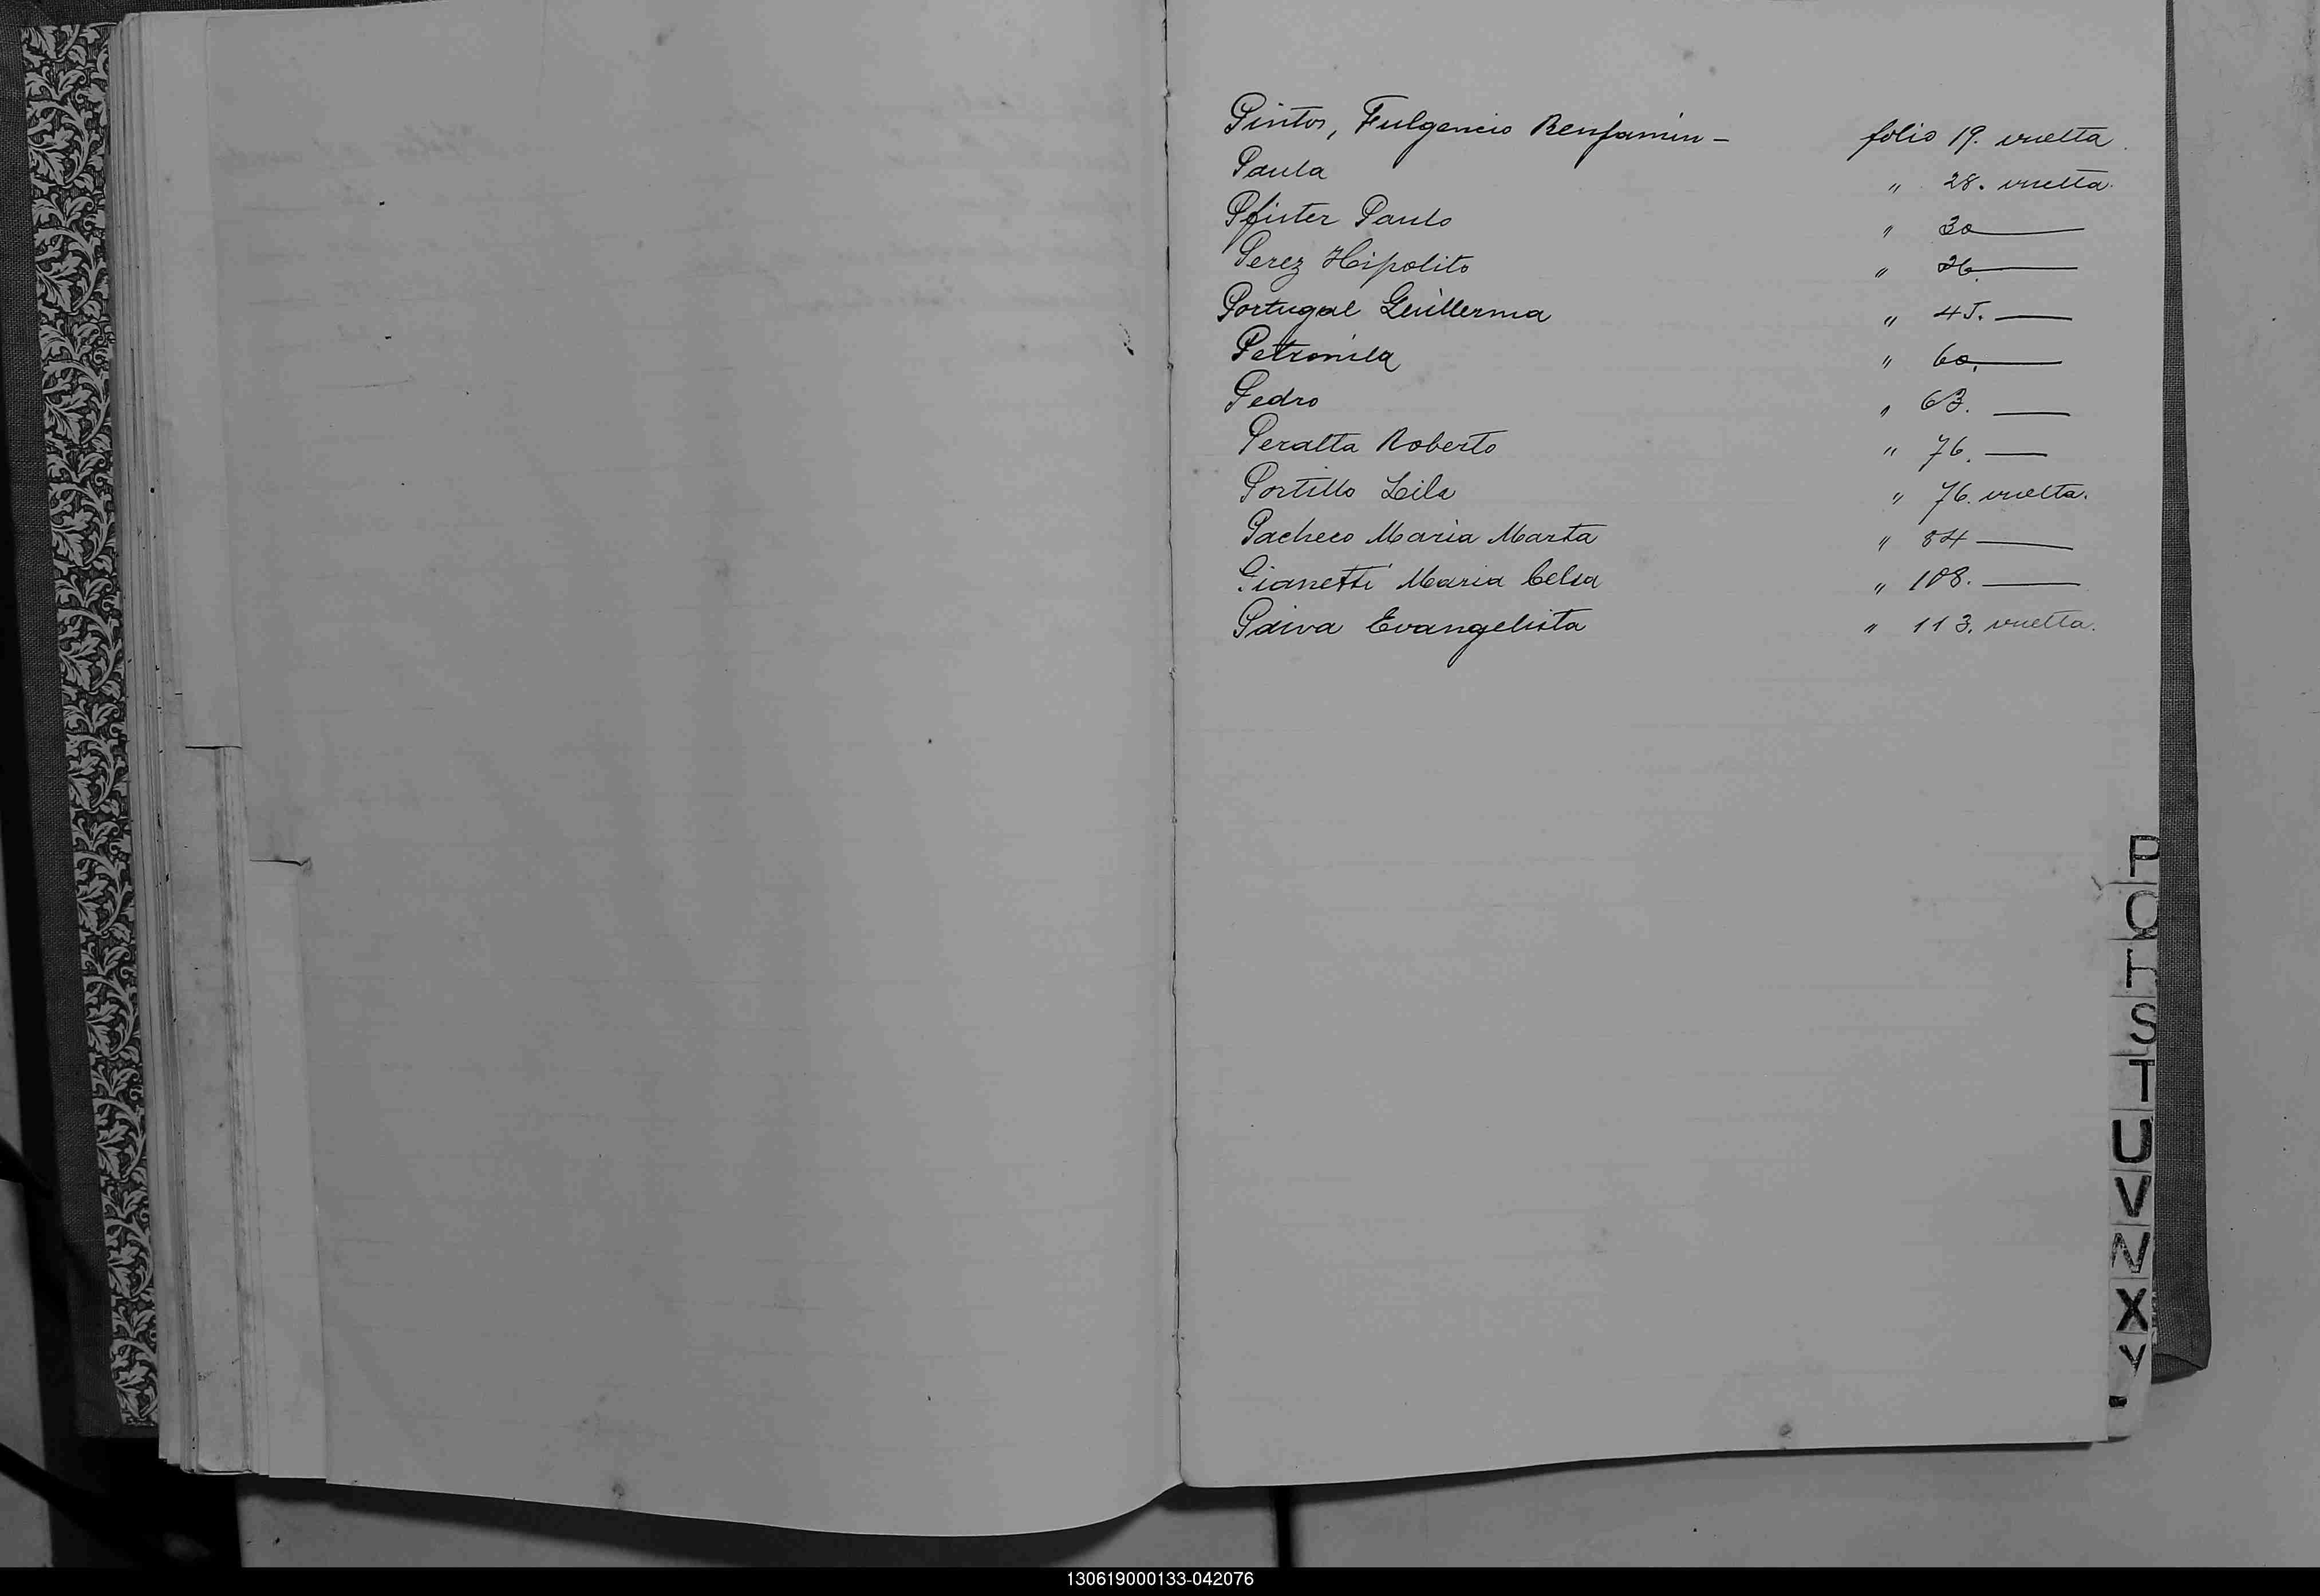 Pintos, Fulgencio Benjamin – folio 19. vuelta.
Paula " 28. vuelta.
Pfister Paulo " 30
Perez Hipolito " 36.
Portugal Guillerma " 45.
Petronila " 60.
Pedro " 63.
Peralta Roberto " 76.
Portillo Lila " 76. vuelta.
Pacheco Maria Marta " 84
Pianetti Maria Celsa " 108.
Paiva Evangelista " 113. vuelta.
P
Q
R
S
T
U
V
N
X
Y
130619000133-042076